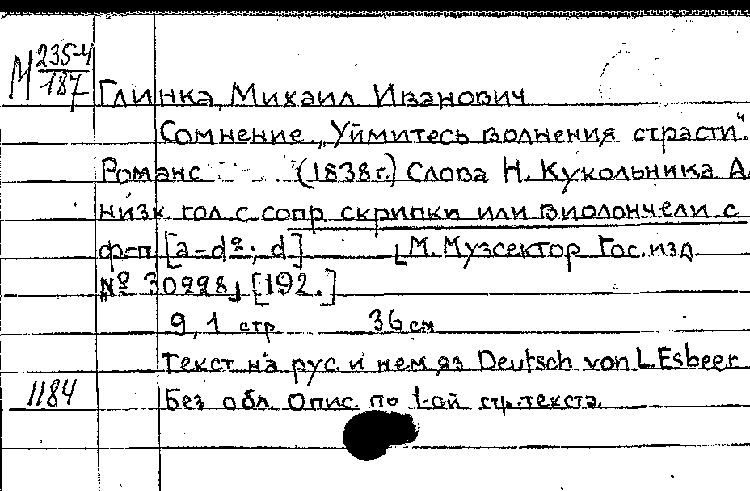 М 235-4
187
Глинка, Михаил Иванович
Сомнение „Уймитесь волнения страсти".
Романс (1838г.) Слова Н. Кукольника Д.
низк. гол. с сопр. скрипки или виолончели с
ф-п. [a-d²; d] [М. Музсектор Гос. изд.
№ 30998] [192.]
9, 1 стр. 36 см
Текст на рус. и нем. яз. Deutsch von L. Esbeer
1184 Без обл. Опис. по 1-ой стр. текста.